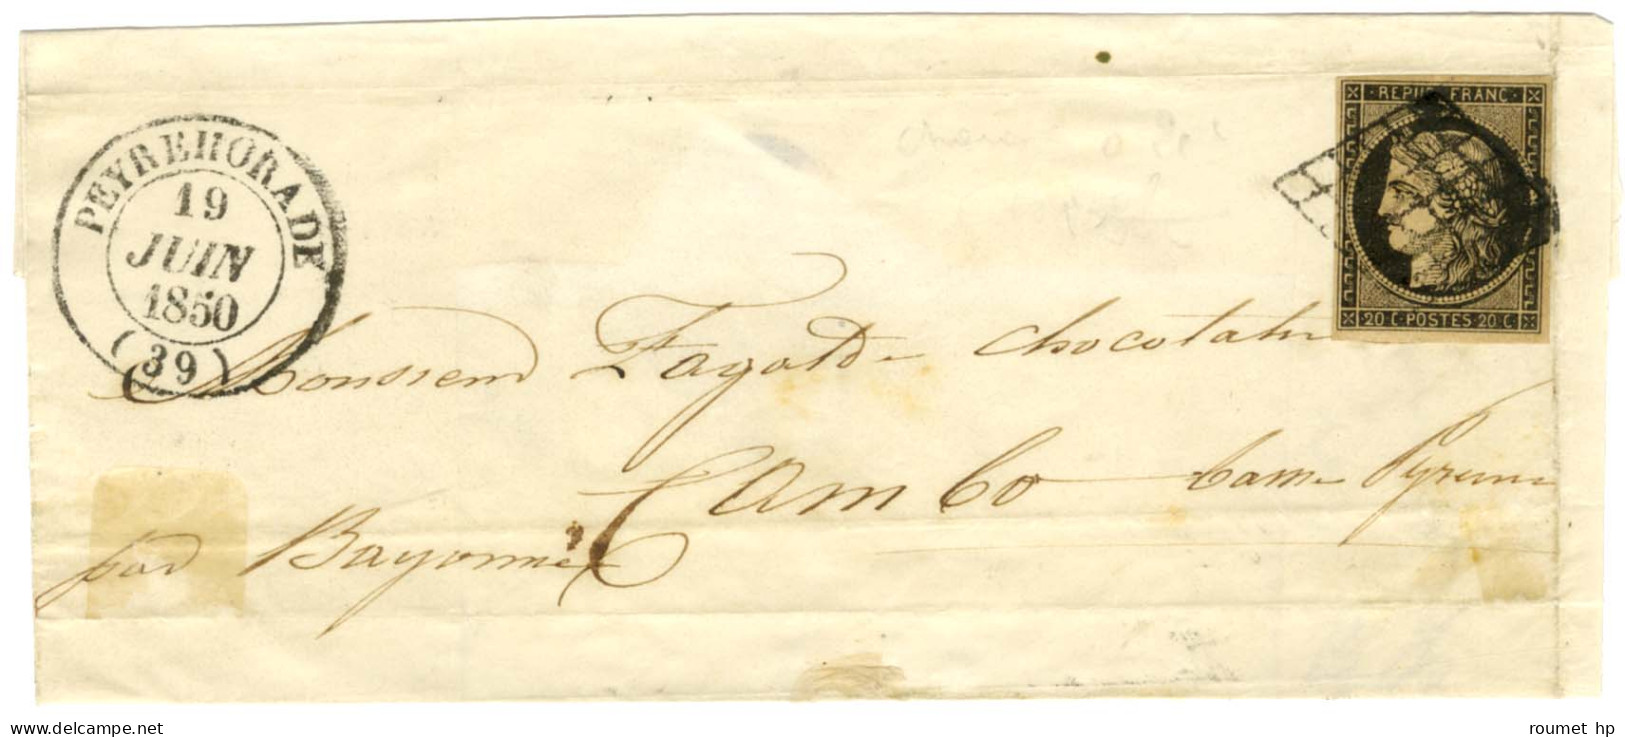 PEYREHORADE
19
JUIN
1850
(39)
REPUB. FRANC.
20 C. POSTES. 20 C.
Monsieur Fagalde chocolatier
Cambo basses Pyrenees
par Bayonne
www.delcampe.net
roumet hp